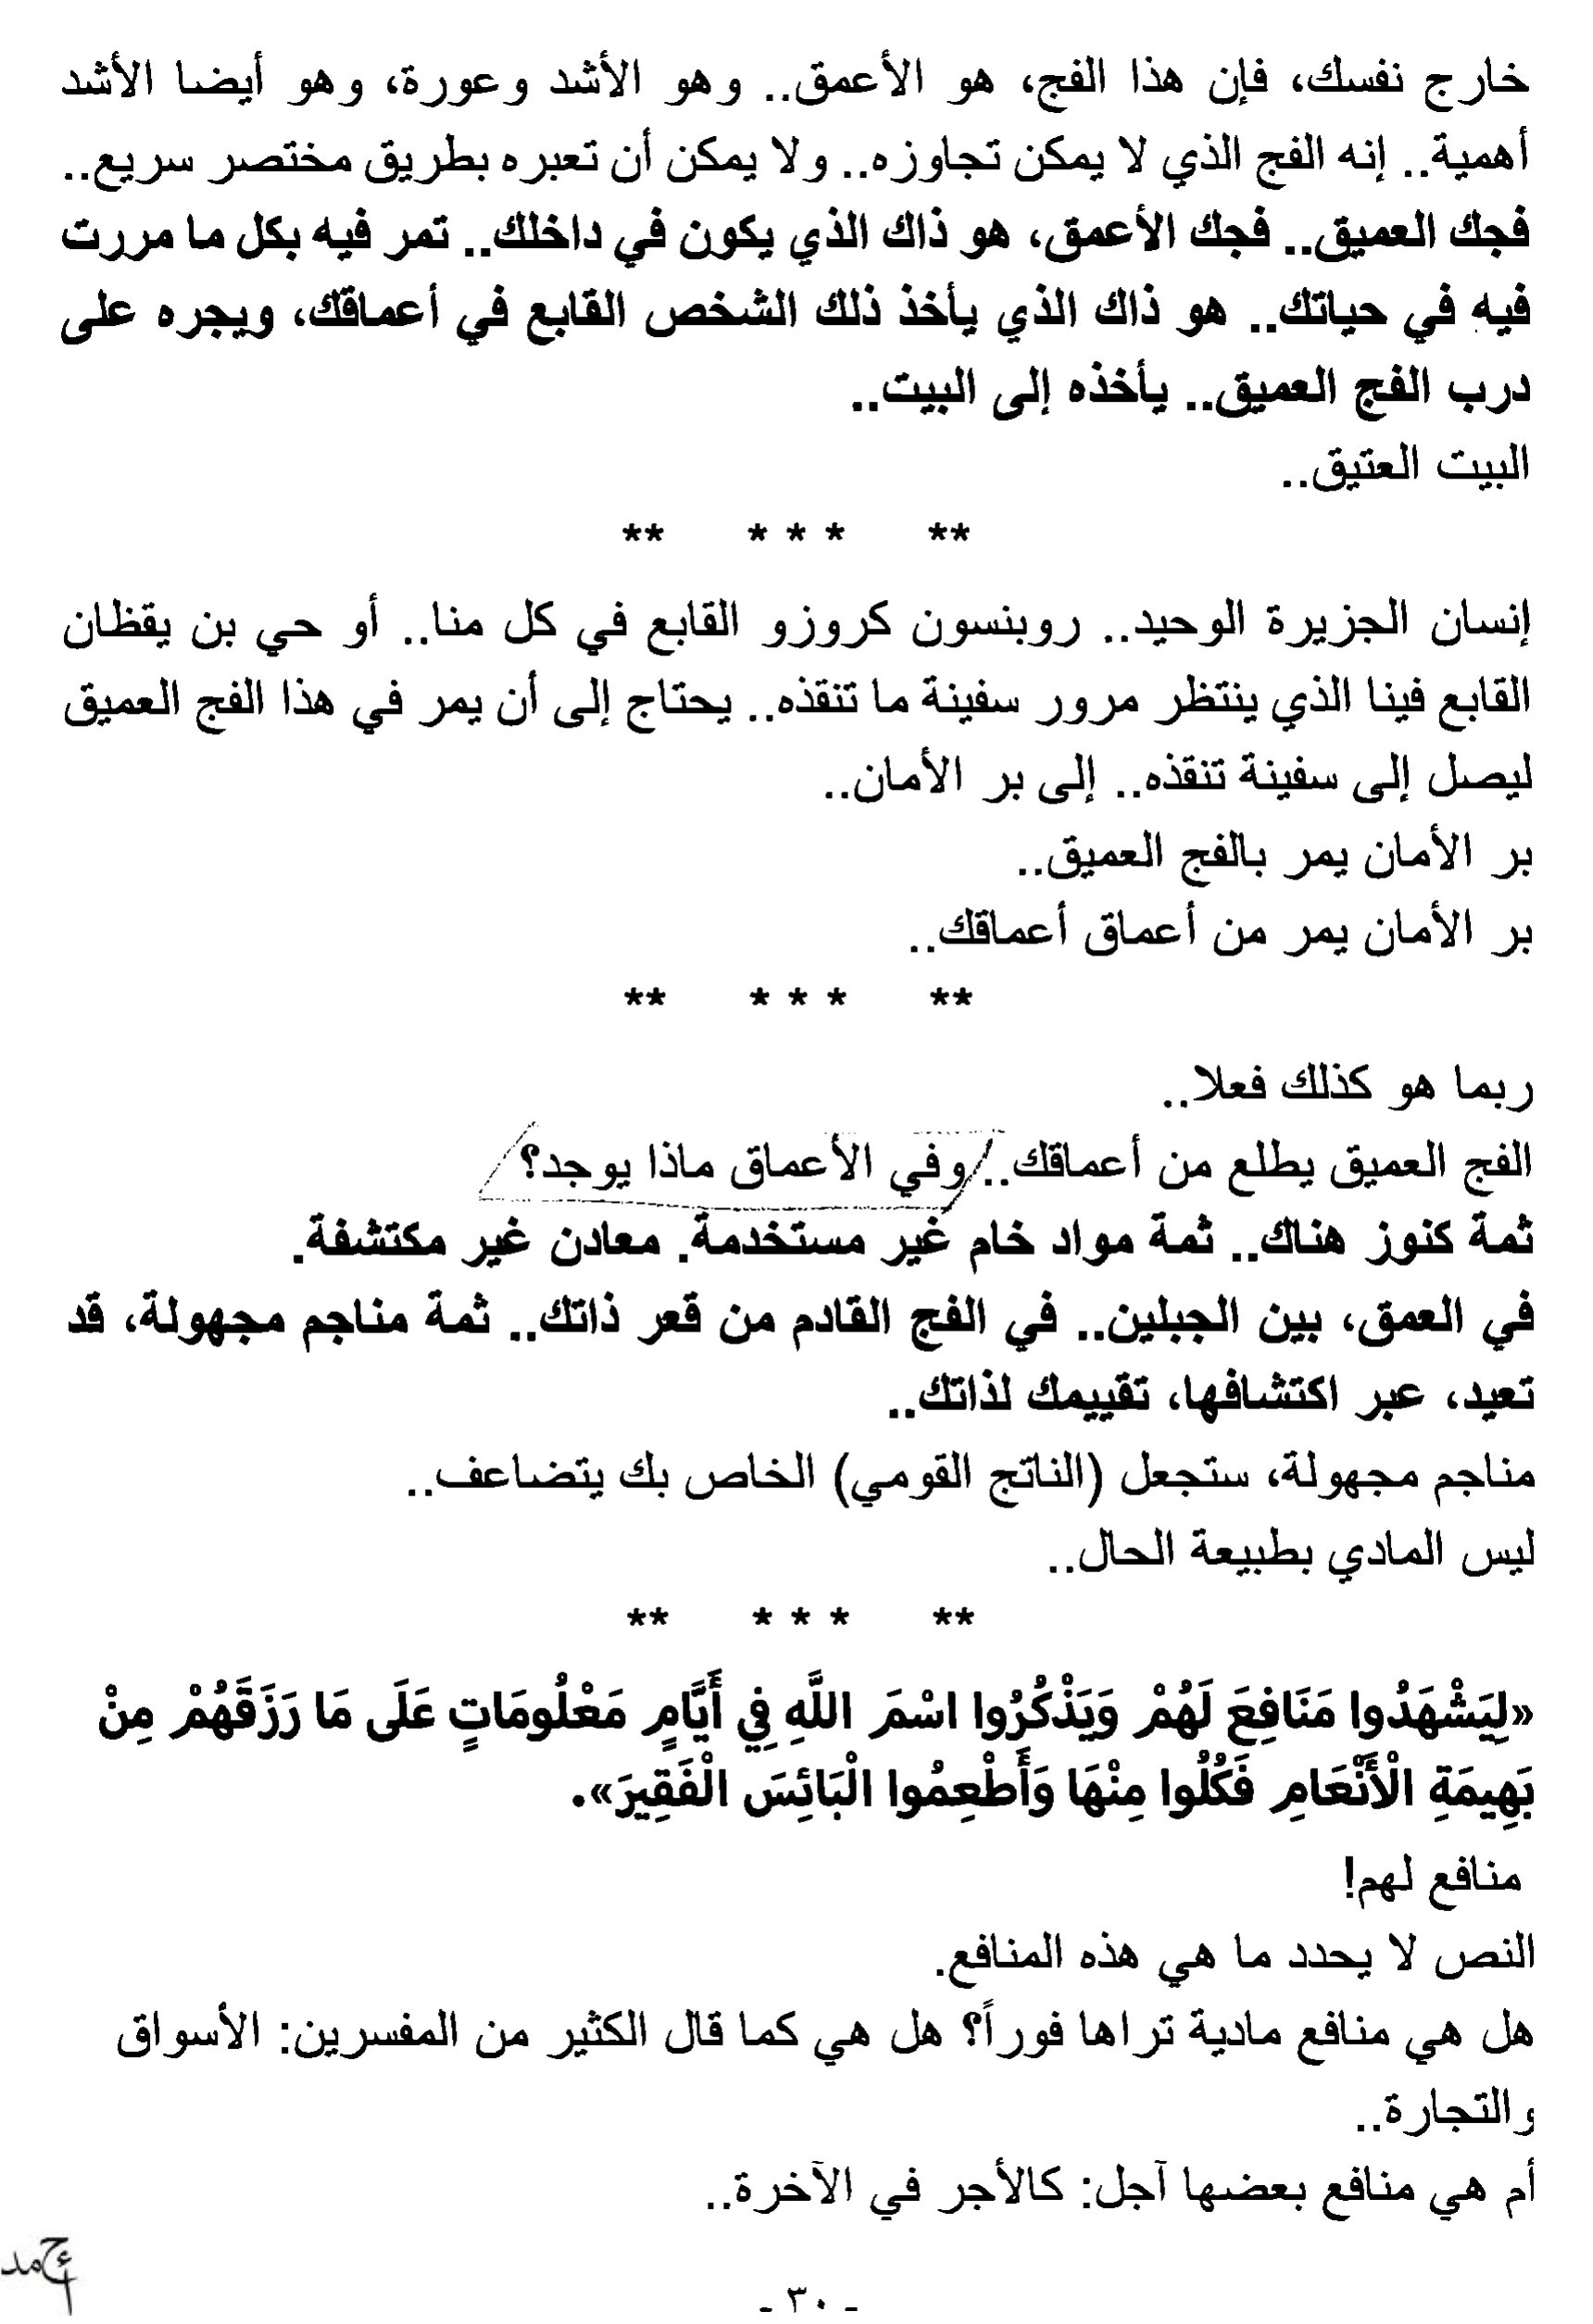 خارج نفسك، فإن هذا الفج، هو الأعمق.. وهو الأشد وعورة، وهو أيضا الأشد
أهمية.. إنه الفج الذي لا يمكن تجاوزه.. ولا يمكن أن تعبره بطريق مختصر سريع..
فجك العميق.. فجك الأعمق، هو ذاك الذي يكون في داخلك.. تمر فيه بكل ما مررت
فيه في حياتك.. هو ذاك الذي يأخذ ذلك الشخص القابع في أعماقك، ويجره على
درب الفج العميق.. يأخذه إلى البيت..
البيت العتيق..
** * * * **
إنسان الجزيرة الوحيد.. روبنسون كروزو القابع في كل منا.. أو حي بن يقظان
القابع فينا الذي ينتظر مرور سفينة ما تنقذه.. يحتاج إلى أن يمر في هذا الفج العميق
ليصل إلى سفينة تنقذه.. إلى بر الأمان..
بر الأمان يمر بالفج العميق..
بر الأمان يمر من أعماق أعماقك..
** * * * **
ربما هو كذلك فعلا..
الفج العميق يطلع من أعماقك.. وفي الأعماق ماذا يوجد؟
ثمة كنوز هناك.. ثمة مواد خام غير مستخدمة. معادن غير مكتشفة.
في العمق، بين الجبلين.. في الفج القادم من قعر ذاتك.. ثمة مناجم مجهولة، قد
تعيد، عبر اكتشافها، تقييمك لذاتك..
مناجم مجهولة، ستجعل (الناتج القومي) الخاص بك يتضاعف..
ليس المادي بطبيعة الحال..
** * * * **
«لِيَشْهَدُوا مَنَافِعَ لَهُمْ وَيَذْكُرُوا اسْمَ اللَّهِ فِي أَيَّامٍ مَعْلُومَاتٍ عَلَى مَا رَزَقَهُمْ مِنْ
بَهِيمَةِ الْأَنْعَامِ فَكُلُوا مِنْهَا وَأَطْعِمُوا الْبَائِسَ الْفَقِيرَ».
منافع لهم!
النص لا يحدد ما هي هذه المنافع.
هل هي منافع مادية تراها فوراً؟ هل هي كما قال الكثير من المفسرين: الأسواق
والتجارة..
أم هي منافع بعضها آجل: كالأجر في الآخرة..
أحمد
- ٣٠ -